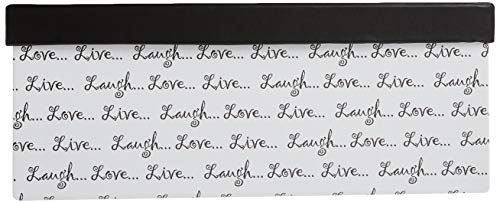 Love... Live... Laugh... Love... Live... Laugh... Love... Live...
Live... Laugh... Love... Live... Laugh... Love... Live... Laugh...
... Laugh... Love... Live... Laugh... Love... Live... Laugh... Love...
ove... Live... Laugh... Love... Live... Laugh... Love... Live...
Laugh... Love... Live... Laugh... Love... Live... Laugh...